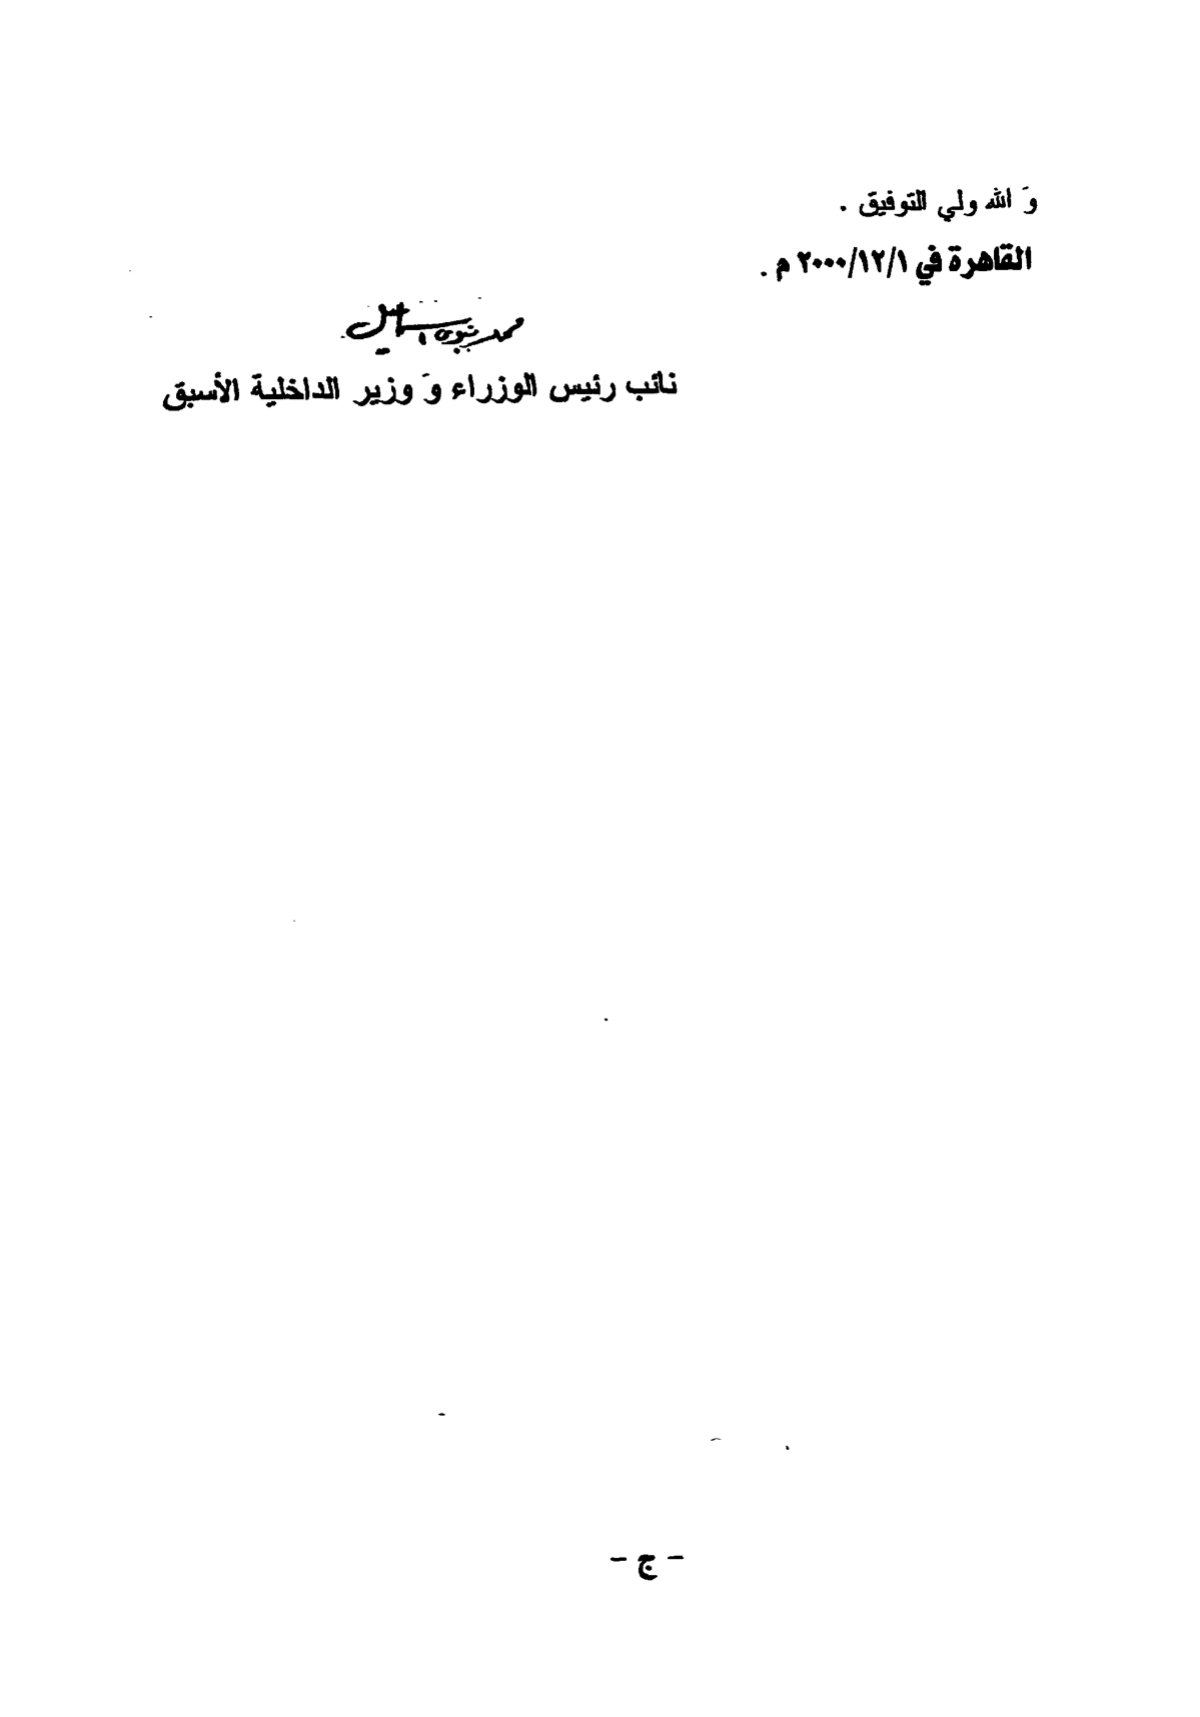 وَ الله ولي التوفيق .
القاهرة في ٢٠٠٠/١٢/١ م .
محمد نبوى اسماعيل
نائب رئيس الوزراء وَ وزير الداخلية الأسبق
- ج -